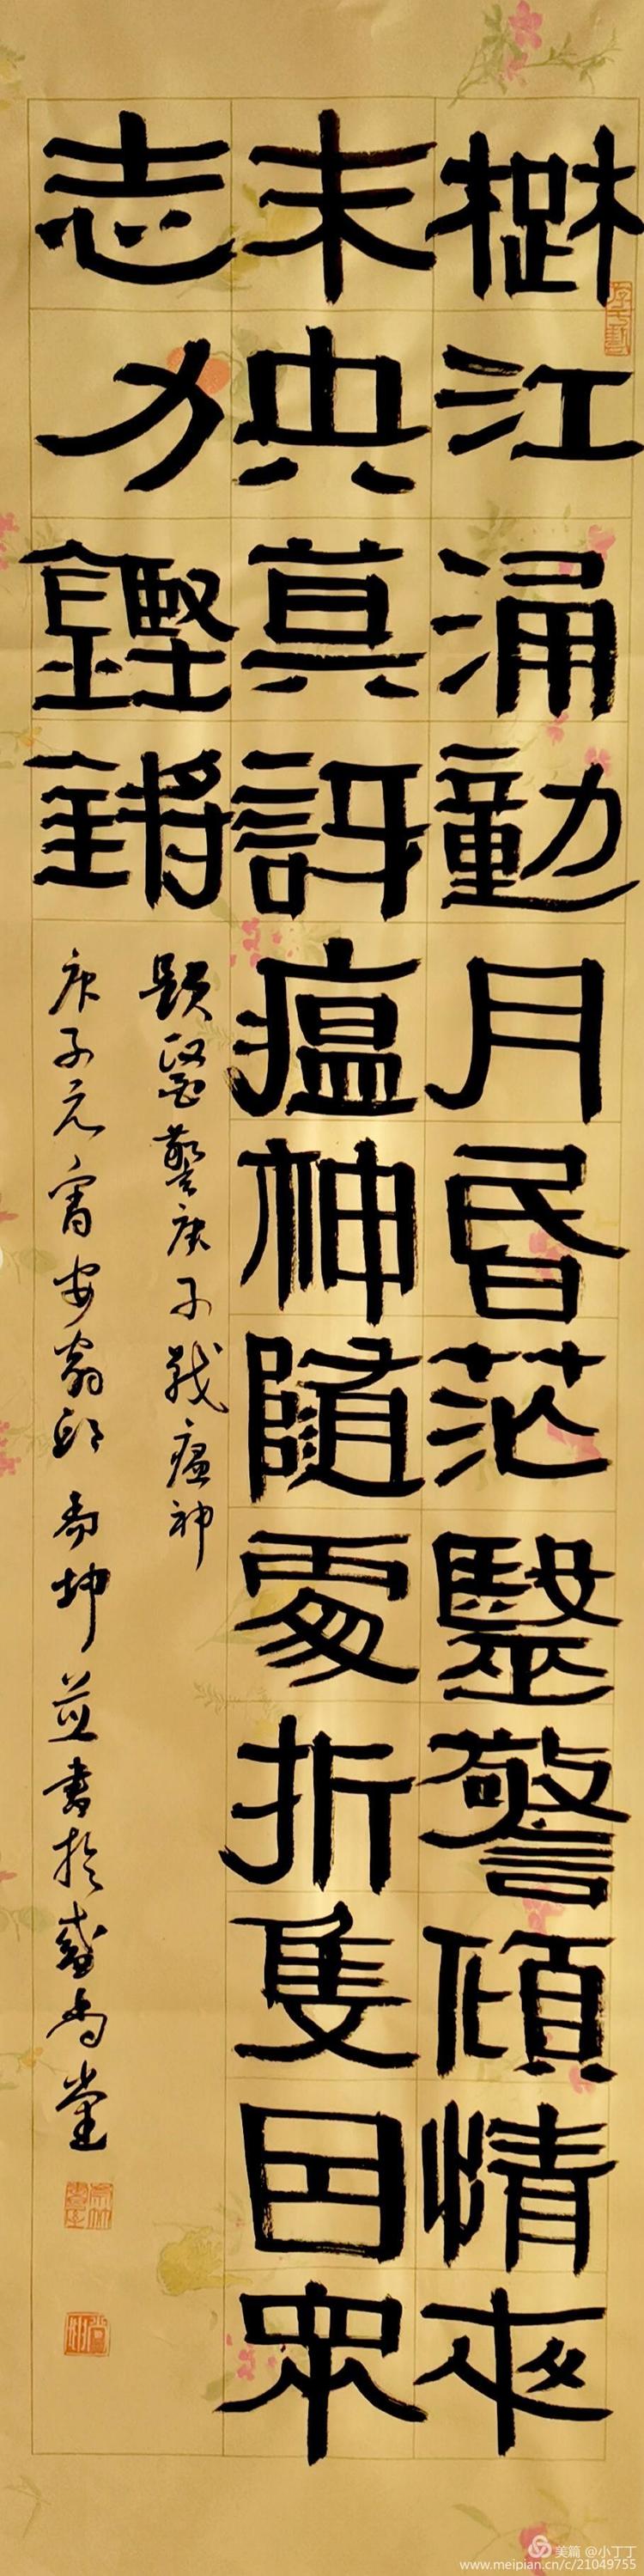 楚江涌動月昏茫毉警傾情夜
未央莫訝瘟神隨處折隻因眾
志力鏗鏘
題醫警庚子戰瘟神
庚子元宵安翁邱尚坤並書於盛尚堂
美篇 @小丁丁
www.meipian.cn/c/21049755